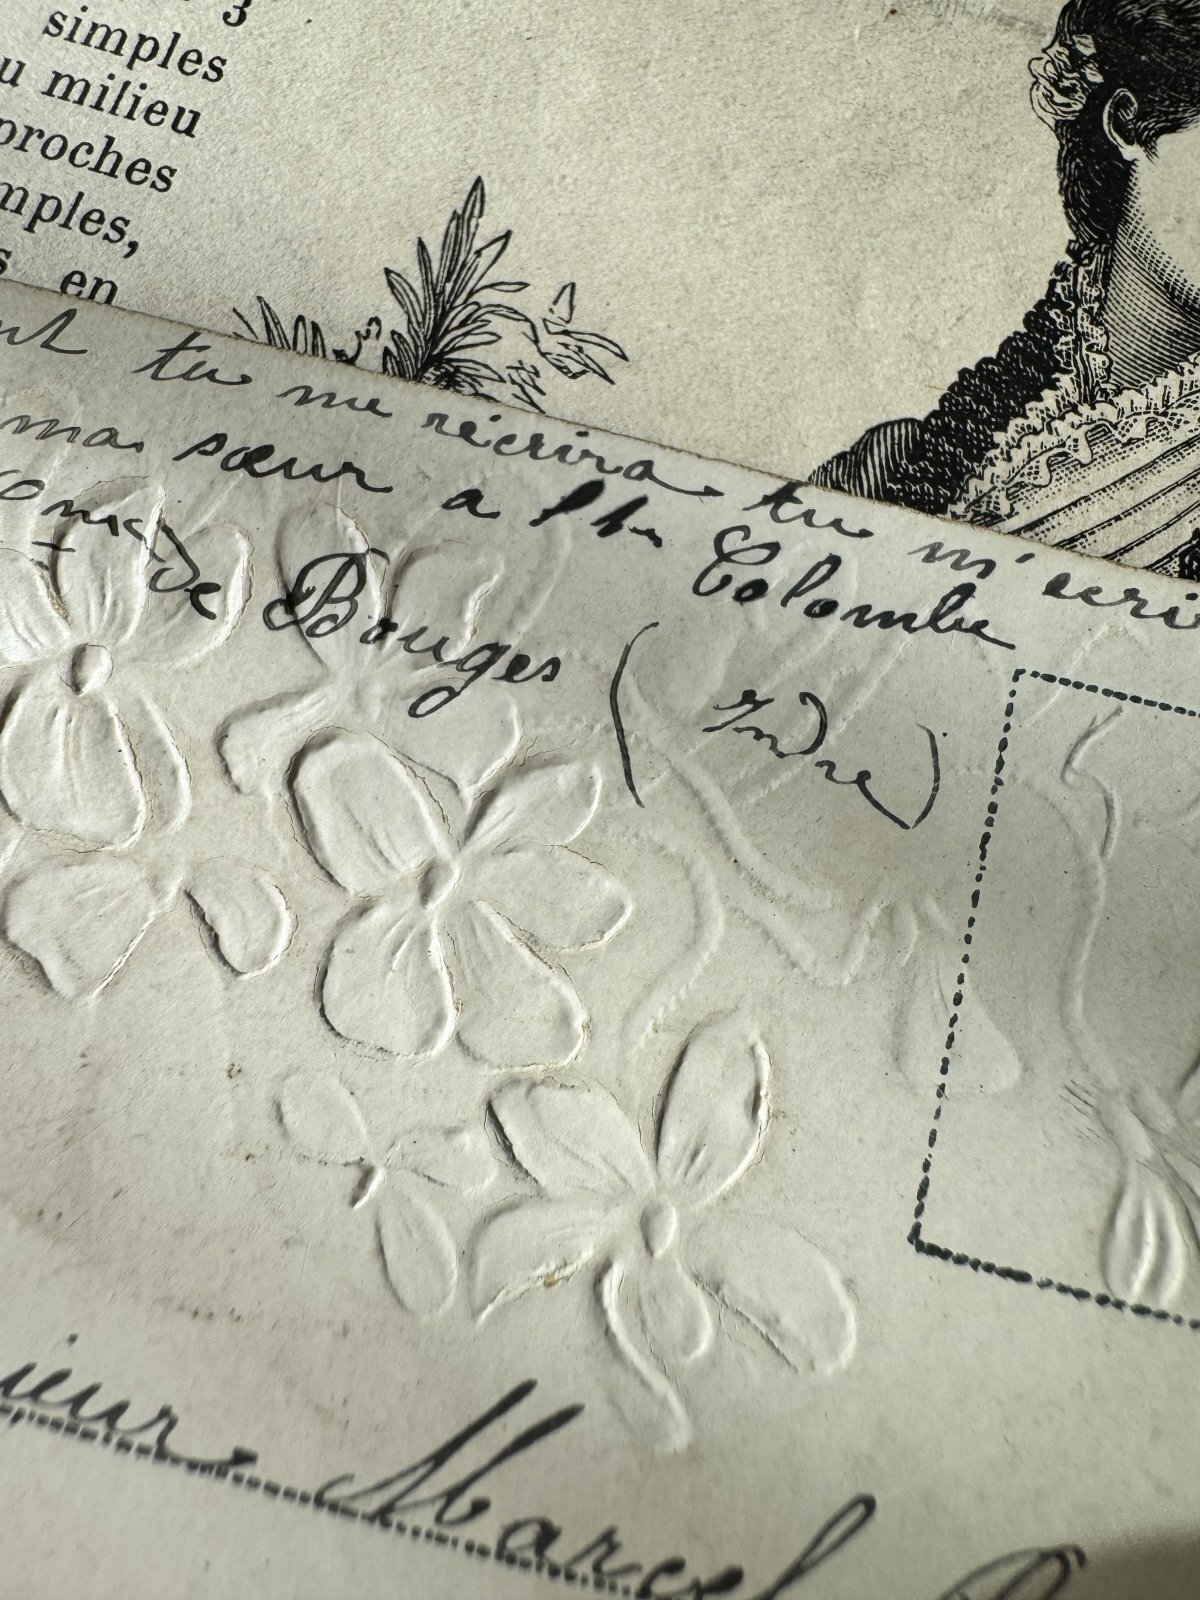 3
simples
u milieu
proches
mples,
s en
tu me récrira tu m'écri
ma sœur a Colombe
de Bouges (Indre)
ieur Marcel